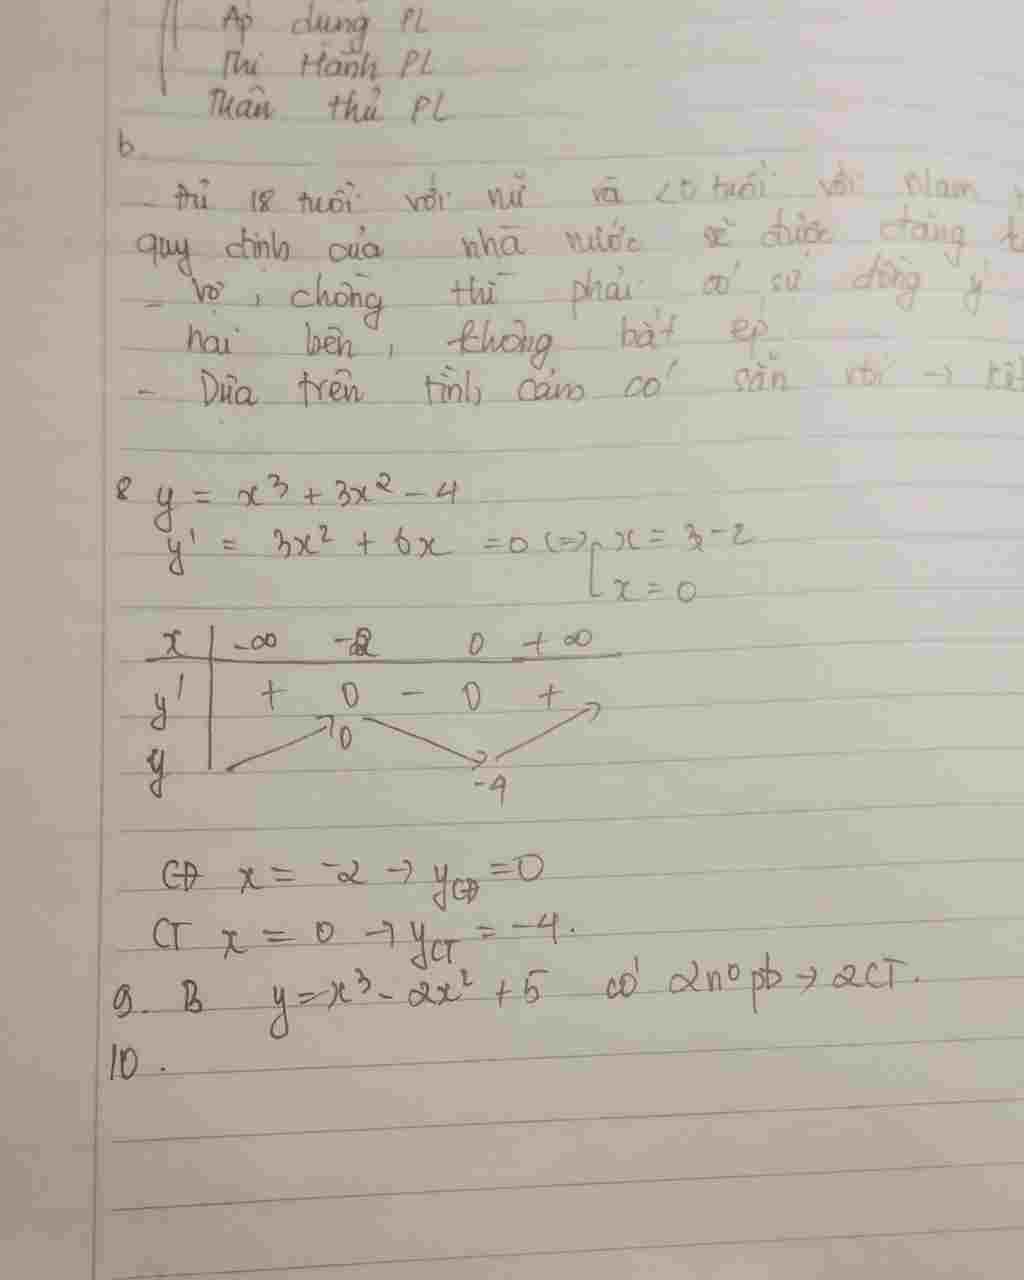 Áp dụng PL
Thi Hành PL
Tuân thủ PL
b.
- đủ 18 tuổi với nữ và 20 tuổi với Nam
quy định của nhà nước sẽ được đăng
- Vợ, chồng thì phải có sự đồng ý
hai bên, không bắt ép
- Dựa trên tình cảm có sẵn rồi →
8 y = x³ + 3x² - 4
y' = 3x² + 6x = 0 <=> [ x = -2
x = 0
x -∞ -2 0 +∞
y' + 0 - 0 +
y 0 -4
CĐ x = -2 → yCĐ = 0
CT x = 0 → yCT = -4.
9. B y = x³ - 2x² + 5 có 2n⁰ pb → 2CT.
10.